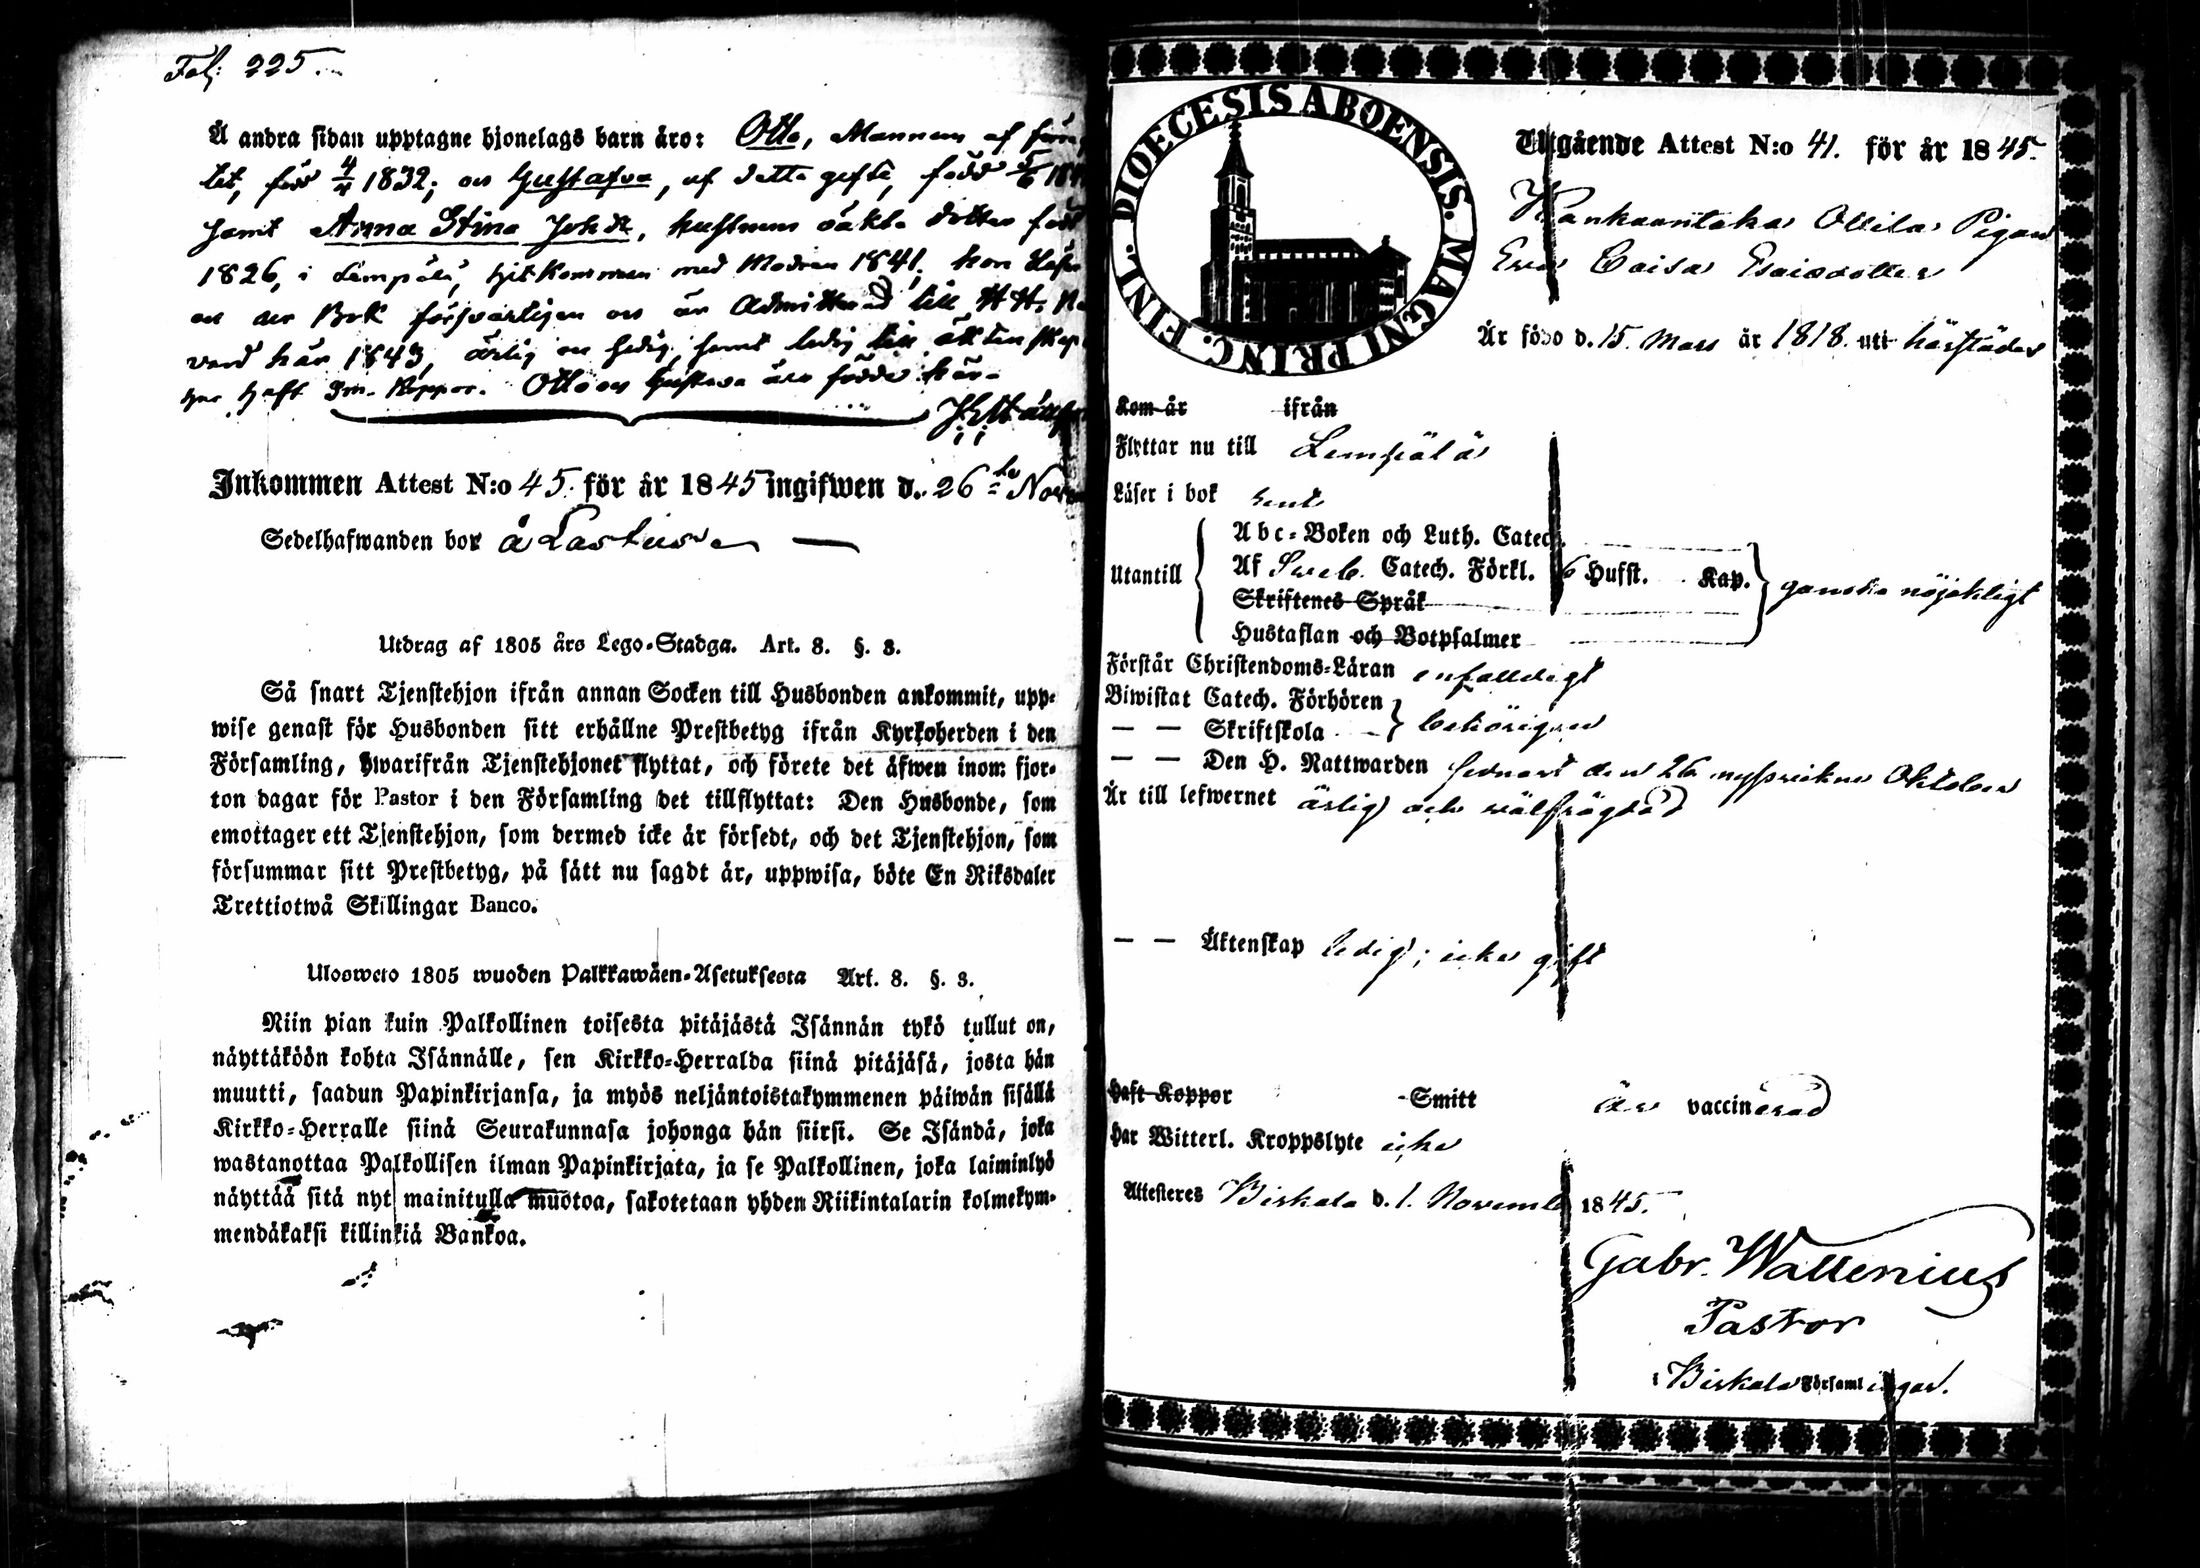 Fol: 225.
Å andra sidan upptagne hjonelags barn äro: Otto, Mannens af förra
tet, född 4/4 1832; och Gustafva, af detta gifte, född
samt Anna Stina Joh dr, hustruns oäkta dotter född
1826, i Lempälä, hitkommen med Modren 1841. hon läser
och der Bok försvarligen och är Admitterad till H. H.
vard här 1843, ärlig och sedig, samt ledig till äktenskap
har haft sm. koppor. Otto och Gustava äro födde här.
Inkommen Attest N:o 45. för år 1845 ingifwen d. 26 te Novem
Sedelhafwanden bor å Lastus
Utdrag af 1805 års Lego-Stadga. Art. 8. §. 8.
Så snart Tjenstehjon ifrån annan Socken till Husbonden ankommit, upp-
wise genast för Husbonden sitt erhållne Prestbetyg ifrån Kyrkoherden i den
Församling, hwarifrån Tjenstehjonet flyttat, och förete det äfwen inom fjor-
ton dagar för Pastor i den Församling det tillflyttat: Den Husbonde, som
emottager ett Tjenstehjon, som dermed icke är försedt, och det Tjenstehjon, som
försummar sitt Prestbetyg, på sätt nu sagdt är, uppwisa, böte En Riksdaler
Trettiotwå Skillingar Banco.
Ulosweto 1805 wuoden Palkkawäen-Asetuksesta Art. 8. §. 8.
Niin pian kuin Palkollinen toisesta pitäjästä Isännän tykö tullut on,
näyttäköön kohta Isännälle, sen Kirkko-Herralda siinä pitäjäsä, josta hän
muutti, saadun Papinkirjansa, ja myös neljäntoistakymmenen päiwän sisällä
Kirkko-Herralle siinä Seurakunnasa johonga hän siirsi. Se Isändä, joka
wastanottaa Palkollisen ilman Papinkirjata, ja se Palkollinen, joka laiminlyö
näyttää sitä nyt mainitulla muotoa, sakotetaan yhden Riikintalarin kolmekym-
mendäkaksi killinkiä Bankoa.
DIOECESIS ABOENSIS. MAGNI PRINC. FINL.
Utgående Attest N:o 41. för år 1845.
Kankaantaka Ollila Pigan
Eva Caisa Esaiasdotter
Är född d. 15. Mars år 1818. uti härstädes
Kom år ifrån
Flyttar nu till Lempälä
Läser i bok rent
Utantill
Abc-Boken och Luth. Catech.
Af Sveb. Catech. Förkl. 6 Hufst. Kap.
Skriftenes Språk
Hustaflan och Botpsalmer
ganska nöjaktigt
Förstår Christendoms-Läran enfalldigt
Biwistat Catech. Förhören
— — Skriftskola
behörigen
— — Den H. Nattwarden senast den 26 nyssvikne Oktober
Är till lefwernet ärlig och välfrägdad
— — Äktenskap ledig; icke gift
Haft Koppor Smitt är vaccinerad
Har Witterl. Kroppslyte icke
Attesteres Birkala d. 1. Novemb 1845.
Gabr. Wallenius
Pastor
i Birkala Församlingar.